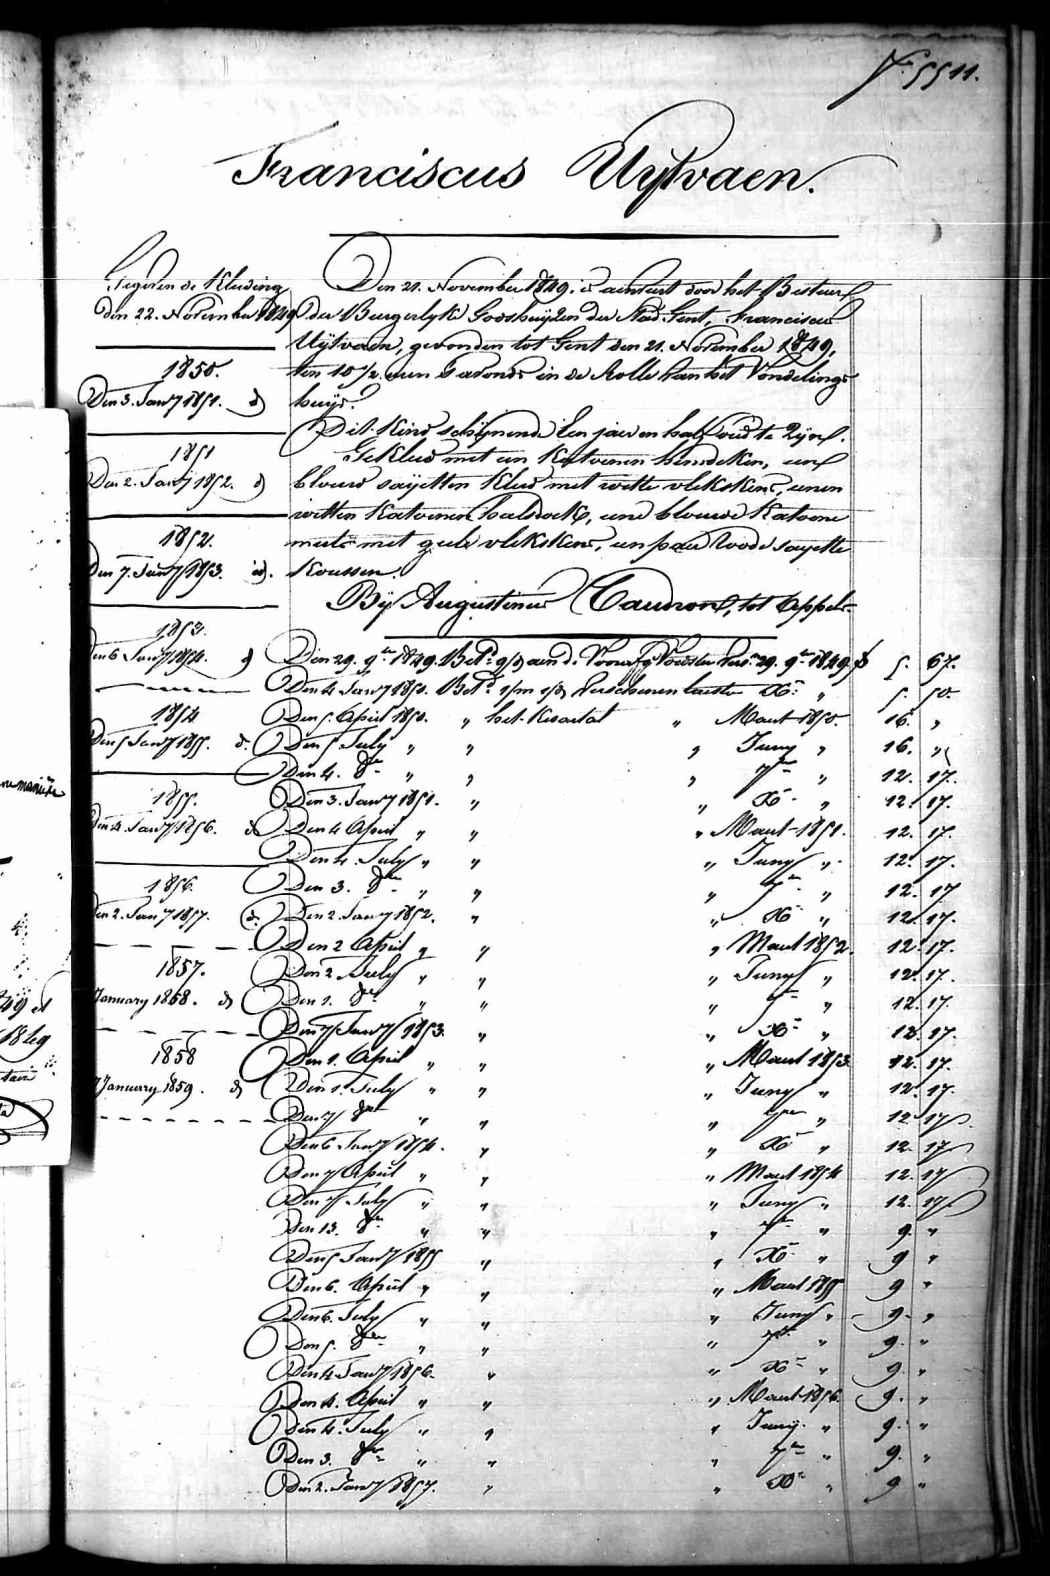 N.° 5511.
Franciscus Uytvaen.
Gegeven de Kleeding
den 22. November 1849
1850.
Den 3. Jan.y 1851. d
1851
Den 2. Jan.y 1852. d
1852.
Den 7. Jan.y 1853. id.
1853.
Den 6 Jan.y 1854. d
1854
Den 5 Jan.y 1855. d.
1855.
Den 4. Jan.y 1856. d
1856.
Den 2. Jan.y 1857. d.
1857.
January 1858. d
1858
7 January 1859. d
Den 21. November 1849. is aenveert door het Bestuer
der Burgerlyke Godshuyzen der Stad Gent, Franciscus
Uytvaen, gevonden tot Gent den 21. November 1849,
ten 10 1/2 uren s'avonds in de Rolle van het Vondelings
huys.
Dit kind schynende een jaer en half oud te zyn.
Gekleed met een Katoenen hemdeken, een
blauw sayetten kleed met witte vlekskens, eenen
witten katoenen halsdoek, eene blauwe katoene
muts met gele vlekskens, een paer roode sayette
koussen.
By Augustinus Caudron, tot Appels
Den 29. 9.bre 1849. Bet.d aen de Voorz. Voedster 29. 9.bre 1849. 5. 67.
Den 4 Jan.y 1850. Bet.d verschenen laeste X.re " 5. 50.
Den 5. April 1850. " het kwartael " Maert 1850. 16. "
Den 5 July " " " Juny " 16. "
Den 4. 8.bre " " " 7.bre " 12. 17.
Den 3. Jan.y 1851. " " X.re " 12. 17.
Den 4 April " " " Maert 1851. 12. 17.
Den 4. July " " " Juny " 12. 17.
Den 3. 8.bre " " " 7.bre " 12. 17
Den 2. Jan.y 1852. " " X.re " 12. 17.
Den 2 April " " " Maert 1852. 12. 17.
Den 2 July " " " Juny " 12. 17.
Den 1. 8.bre " " " 7.bre " 12. 17.
Den 7 Jan.y 1853. " " X.re " 12. 17.
Den 1. April " " " Maert 1853 12. 17.
Den 1. July " " " Juny " 12. 17.
Den 7 8.bre " " " 7.bre " 12. 17.
Den 6 Jan.y 1854. " " X.re " 12. 17
Den 7 April " " " Maert 1854 12. 17
Den 7 July " " " Juny " 12. 17.
Den 13. 8.bre " " " 7.bre " 9. "
Den 5 Jan.y 1855 " " X.re " 9 "
Den 6. April " " " Maert 1855 9 "
Den 6. July " " " Juny " 9. "
Den 5. 8.bre " " " 7.bre " 9. "
Den 4 Jan.y 1856. " " X.re " 9. "
Den 4. April " " " Maert 1856. 9. "
Den 4. July " " " Juny " 9. "
Den 3. 8.bre " " " 7.bre " 9. "
Den 2. Jan.y 1857. " " X.re " 9 "